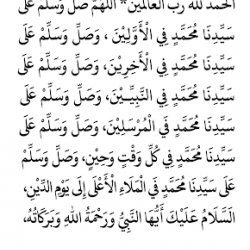 الحمد لله رب العالمين* اللهم صل وسلم على
سَيِّدِنَا مُحَمَّدٍ فِي الْأَوَّلِينَ ، وَصَلِّ وَسَلِّمْ عَلَى
سَيِّدِنَا مُحَمَّدٍ فِي الْأَخِرِينَ، وَصَلِّ وَسَلِّمْ عَلَى
سَيِّدِنَا مُحَمَّدٍ فِي النَّبِيِّينَ، وَصَلِّ وَسَلِّمْ عَلَى
سَيِّدِنَا مُحَمَّدٍ فِي الْمُرْسَلِينَ، وَصَلِّ وَسَلِّمْ عَلَى
سَيِّدِنَا مُحَمَّدٍ فِي كُلِّ وَقْتٍ وَحِيْنٍ، وَصَلِّ وَسَلِّمْ
عَلَى سَيِّدِنَا مُحَمَّدٍ فِي الْمَلَاءِ الْأَعْلَى إِلَى يَوْمِ الدِّيْنِ،
السَّلَامُ عَلَيْكَ أَيُّهَا النَّبِيُّ وَرَحْمَةُ اللهِ وَبَرَكَاتُهُ،